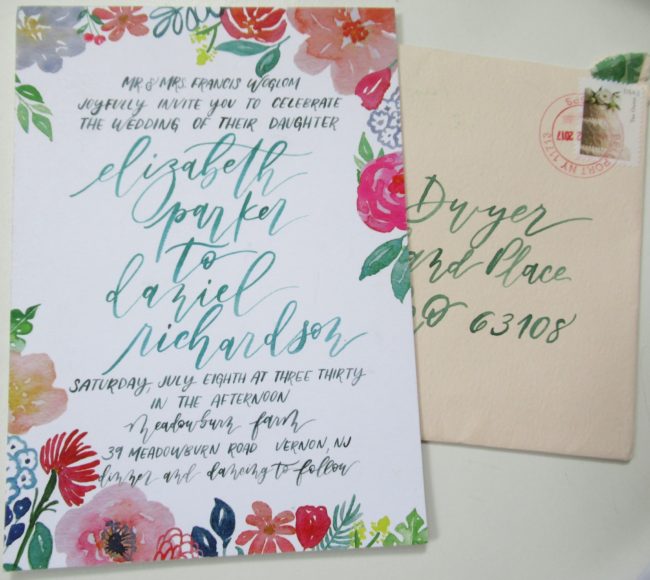 MR & MRS. FRANCIS WOGLOM
JOYFULLY INVITE YOU TO CELEBRATE
THE WEDDING OF THEIR DAUGHTER
elizabeth
parker
to
daniel
richardson
SATURDAY, JULY EIGHTH AT THREE THIRTY
IN THE AFTERNOON
meadowburn farm
39 MEADOWBURN ROAD VERNON, NJ
dinner and dancing to follow
Dwyer
and Place
O 63108
PORT NY 11713
2017